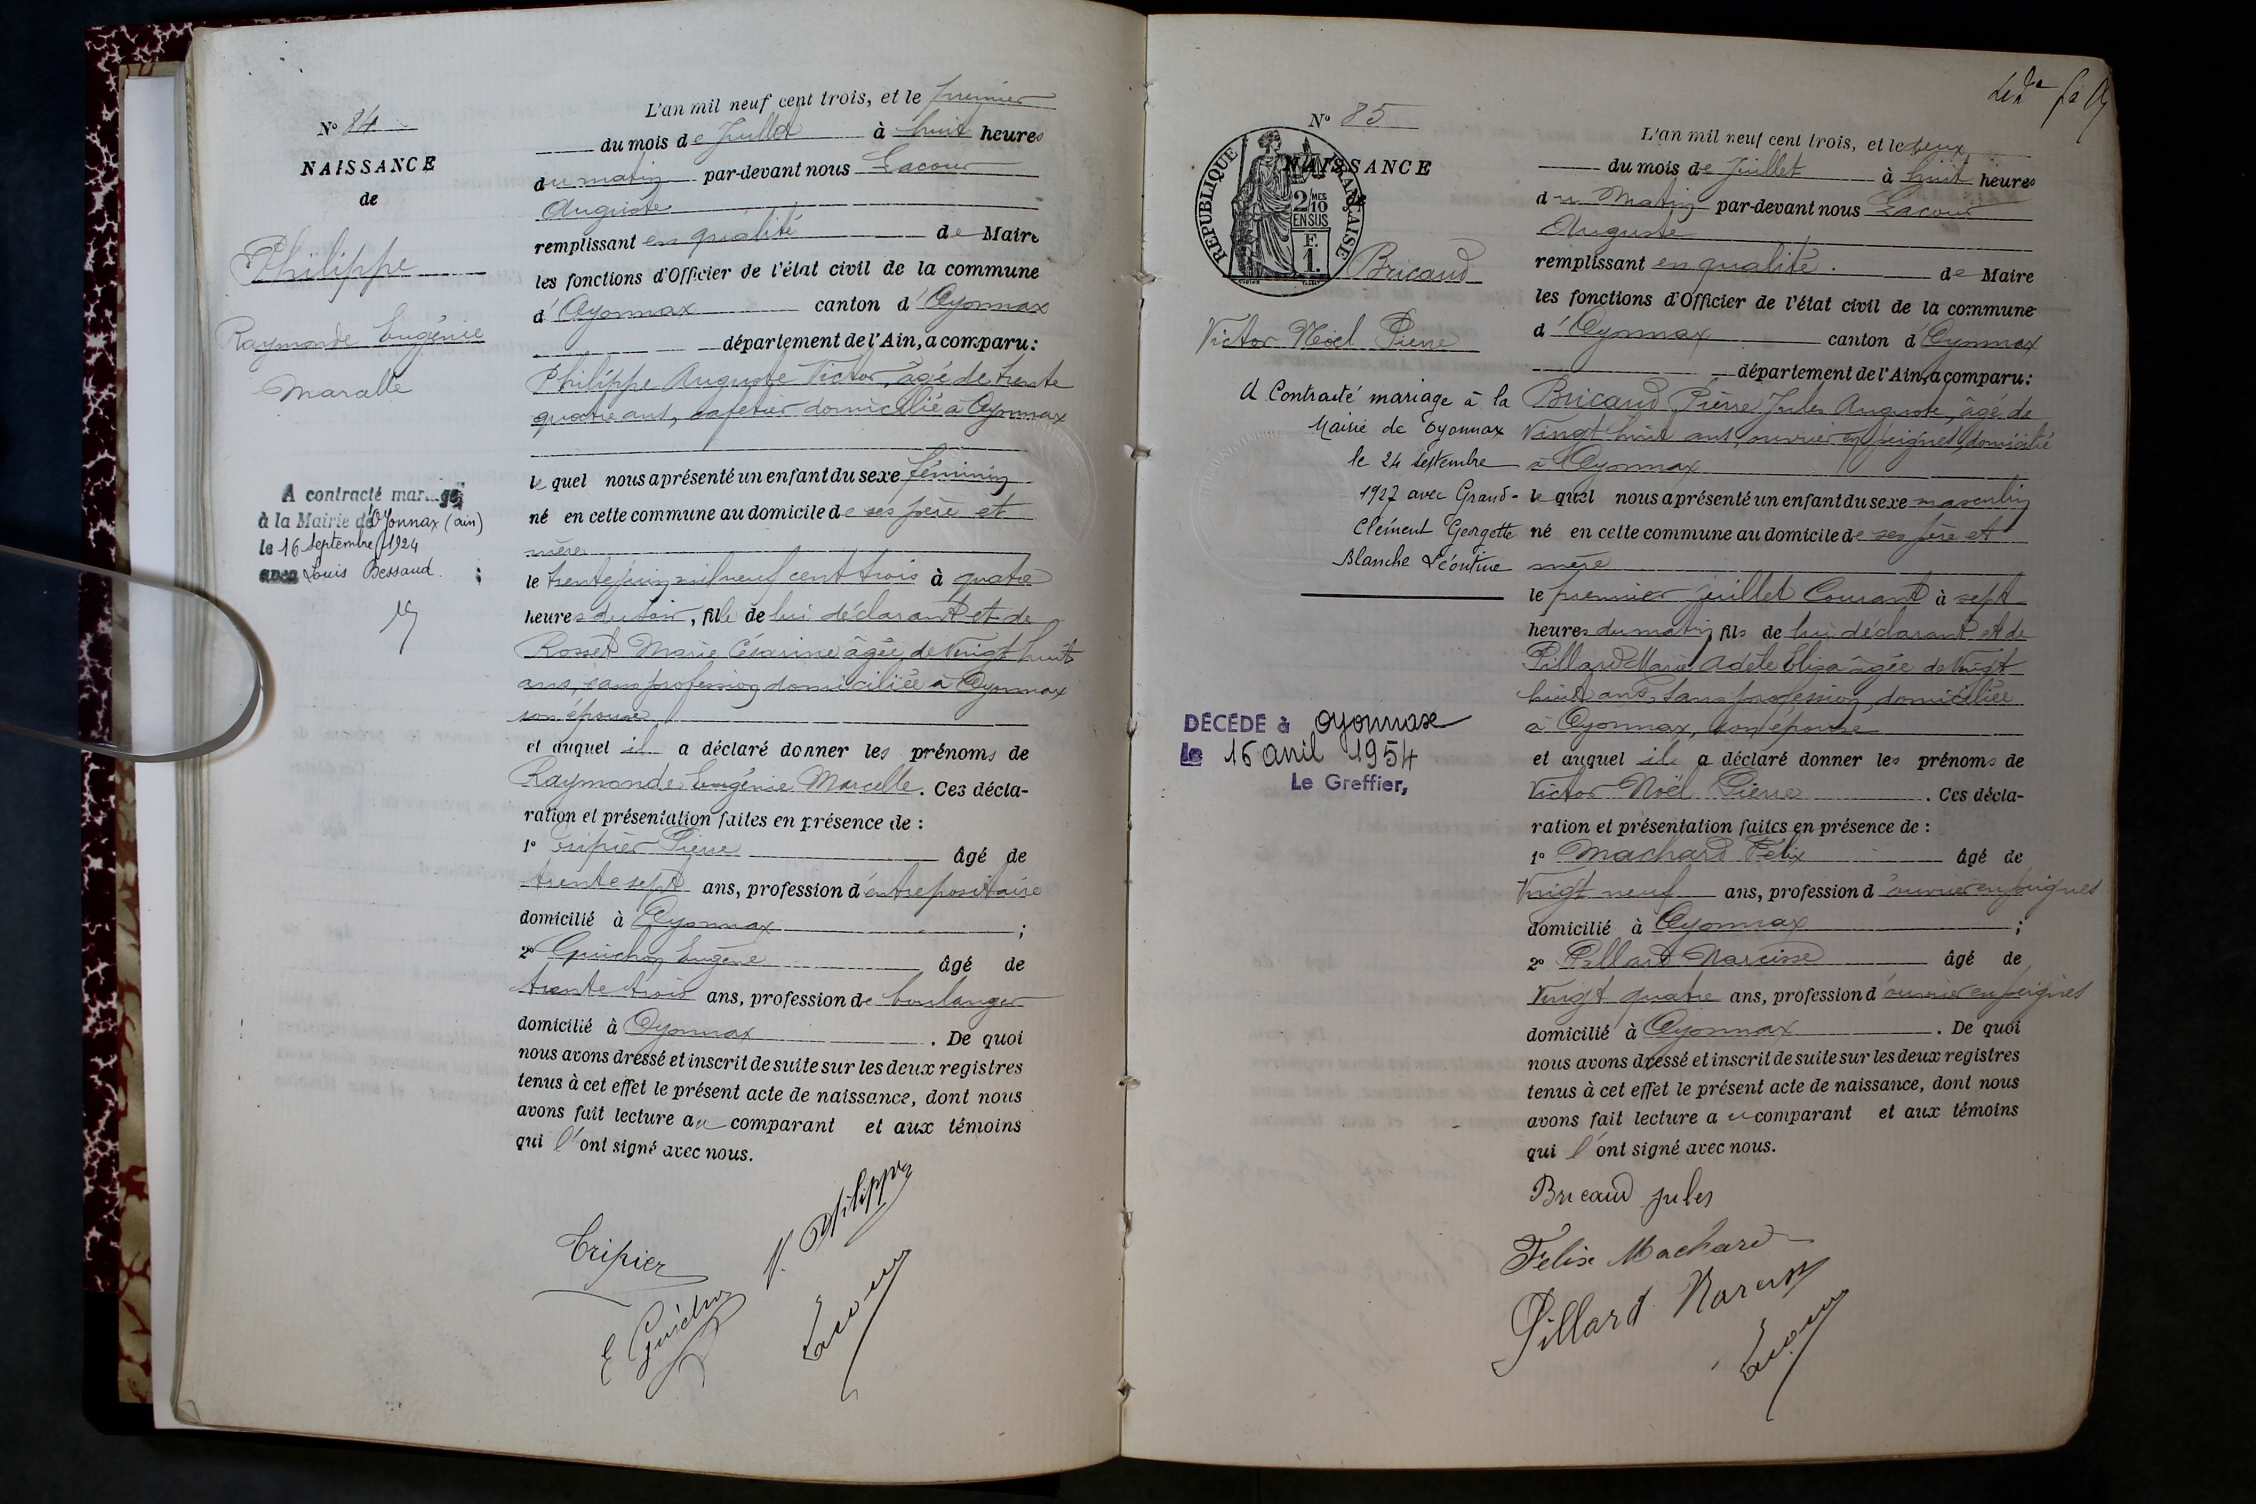 N° 84
NAISSANCE
de
Philippe
Raymonde Eugénie
Marcelle
A contracté mariage
à la Mairie de Oyonnax (ain)
le 16 septembre 1924
avec Louis Bessaud.
L'an mil neuf cent trois, et le premier
du mois de Juillet à huit heures
du matin par-devant nous Lacour
Auguste
remplissant en qualité de Maire
les fonctions d'Officier de l'état civil de la commune
d'Oyonnax canton d'Oyonnax
département de l'Ain, a comparu:
Philippe Auguste Victor, âgé de trente
quatre ans, cafetier domicilié à Oyonnax
lequel nous a présenté un enfant du sexe féminin
né en cette commune au domicile de ses père et
mère
le trente juin mil neuf cent trois à quatre
heures du soir, fille de lui déclarant et de
Rosset Marie Césarine âgée de vingt huit
ans, sans profession domiciliée à Oyonnax
son épouse
et auquel il a déclaré donner les prénoms de
Raymonde Eugénie Marcelle. Ces décla-
ration et présentation faites en présence de :
1° Tripier Pierre âgé de
trente sept ans, profession d'entrepositaire
domicilié à Oyonnax ;
2° Guichon Eugène âgé de
trente trois ans, profession de boulanger
domicilié à Oyonnax . De quoi
nous avons dressé et inscrit de suite sur les deux registres
tenus à cet effet le présent acte de naissance, dont nous
avons fait lecture au comparant et aux témoins
qui l'ont signé avec nous.
V. Philippe
Tripier
E Guichon
Lacour
N° 85
NAISSANCE
REPUBLIQUE FRANÇAISE
2/10 MES
EN SUS
F.
1.
Bricaud
Victor Noël Pierre
A Contracté mariage à la
Mairie de Oyonnax
le 24 septembre
1927 avec Grand-
Clément Georgette
Blanche Léontine
DÉCÉDÉ à Oyonnax
le 16 avril 1954
Le Greffier,
L'an mil neuf cent trois, et le deux
du mois de Juillet à huit heures
du Matin par-devant nous Lacour
Auguste
remplissant en qualité . de Maire
les fonctions d'Officier de l'état civil de la commune
d'Oyonnax canton d'Oyonnax
département de l'Ain, a comparu:
Bricaud Pierre Jules Auguste, âgé de
Vingt huit ans, ouvrier en peignes, domicilié
à Oyonnax
lequel nous a présenté un enfant du sexe masculin
né en cette commune au domicile de ses père et
mère
le premier juillet Courant à sept
heures du matin, fils de lui déclarant et de
Pillard Marie Adèle Elisa âgée de Vingt
huit ans, sans profession, domiciliée
à Oyonnax, son épouse
et auquel il a déclaré donner les prénoms de
Victor Noël Pierre . Ces décla-
ration et présentation faites en présence de :
1° Machard Félix âgé de
Vingt neuf ans, profession d'ouvrier en peignes
domicilié à Oyonnax ;
2° Pillard Narcisse âgé de
Vingt quatre ans, profession d'ouvrier en peignes
domicilié à Oyonnax . De quoi
nous avons dressé et inscrit de suite sur les deux registres
tenus à cet effet le présent acte de naissance, dont nous
avons fait lecture au comparant et aux témoins
qui l'ont signé avec nous.
Bricaud Jules
Felix Machard
Pillard Narcisse
Lacour